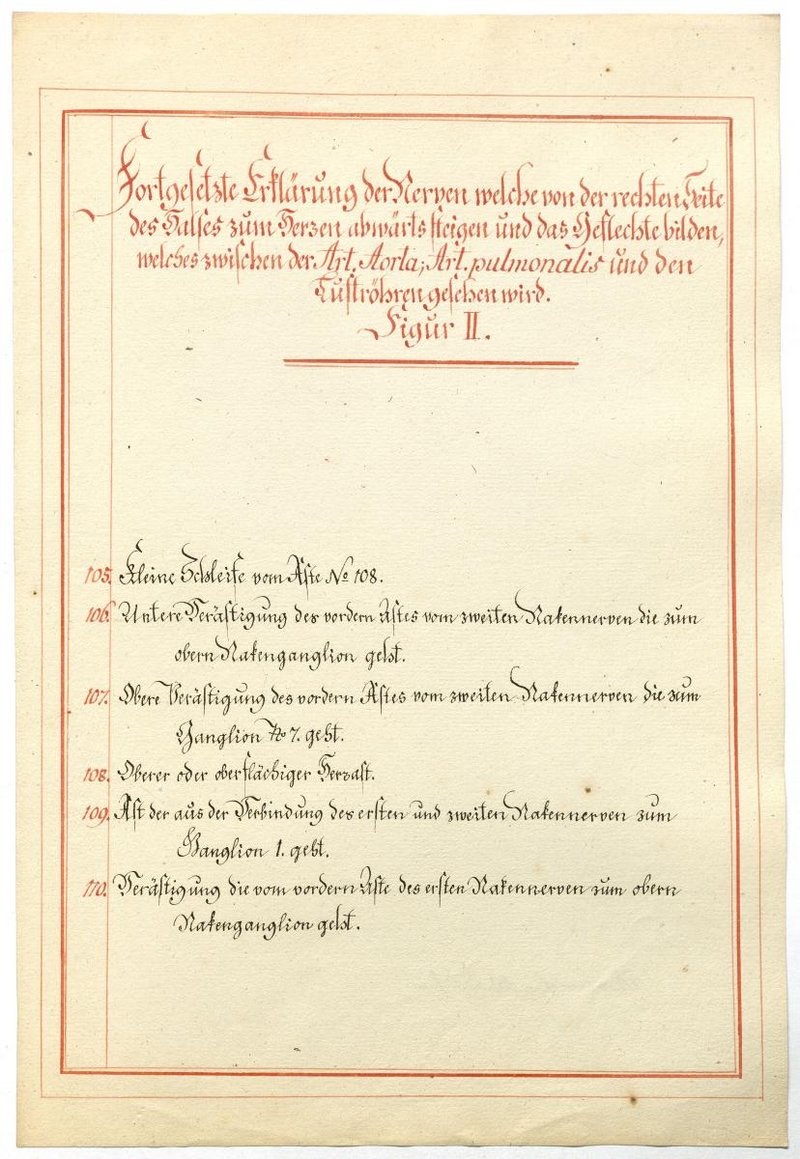 Fortgesetzte Erklärung der Nerven welche von der rechten Seite
des Halses zum Herzen abwärts steigen und das Geflechte bilden,
welches zwischen der Art. Aorta, Art. pulmonalis und den
Luftröhren gesehen wird.
Figur II.
105. Kleine Schleife vom Äste No 108.
106. Untere Verästigung des vordern Astes vom zweiten Nakennerven die zum
obern Nakenganglion geht.
107. Obere Verästigung des vordern Astes vom zweiten Nakennerven die zum
Ganglion No 7. geht.
108. Oberer oder oberflächiger Herzast.
109. Ast der aus der Verbindung des ersten und zweiten Nakennerven zum
Ganglion 1. geht.
110. Verästigung die vom vordern Aste des ersten Nakennerven zum obern
Nakenganglion geht.